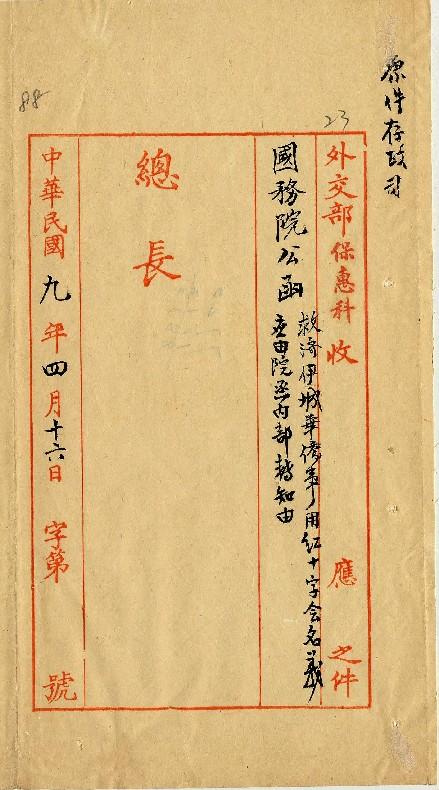 原件存政司
23
88
外交部保惠科收 應 之件
國務院公函
救濟伊城華僑事用紅十字会名義
應由院函內部轉知由
總長
中華民國九年四月十六日 字第 號